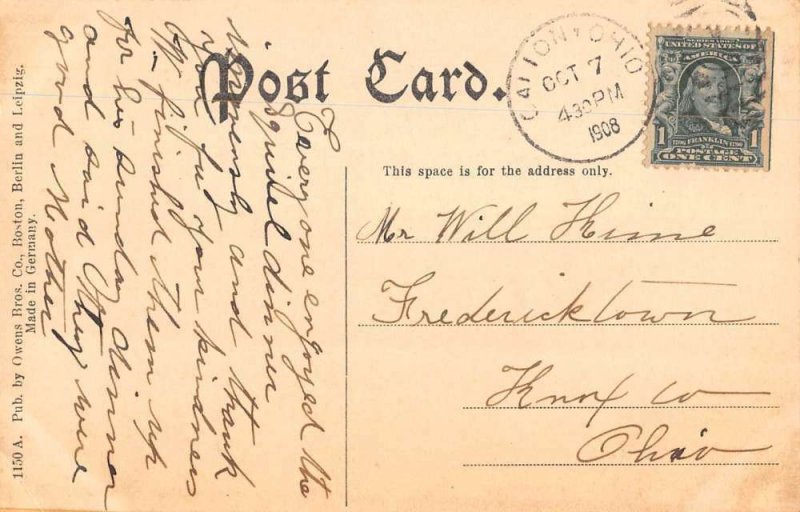 Post Card.
GALION OHIO
OCT 7
430PM
1908
SERIES 1902
UNITED STATES OF
AMERICA
1706 FRANKLIN 1790
1 POSTAGE 1
ONE CENT
This space is for the address only.
Mr Will Hime
Fredericktown
Knox co
Ohio
Everyone enjoyed the
squirel dinner
immensly and thank
you for your kindness
W. finished them up
for his Sunday dinner
and said they were
good Mother
1150 A. Pub. by Owens Bros. Co., Boston, Berlin and Leipzig.
Made in Germany.